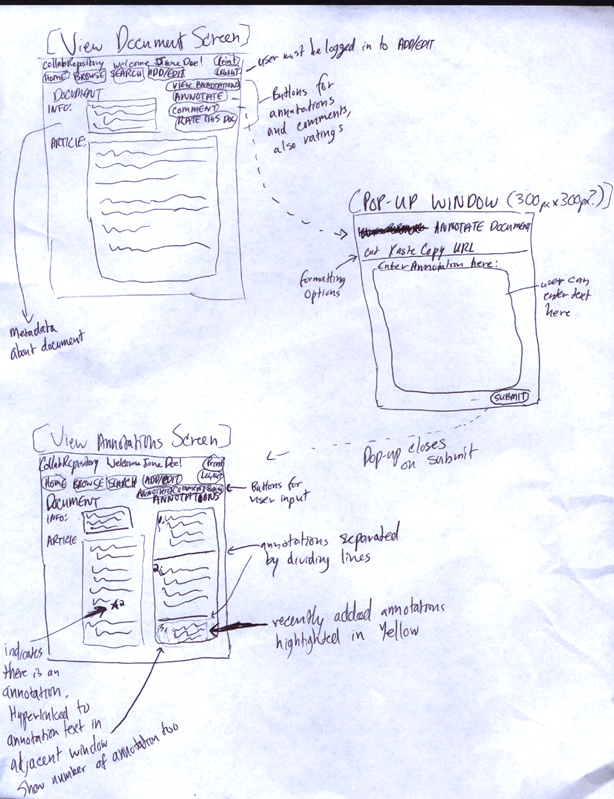 [View Document Screen]
CollabRepository Welcome Jane Doe! Print
Home BROWSE SEARCH ADD/EDIT Logout
user must be logged in to ADD/EDIT
DOCUMENT
VIEW ANNOTATIONS
INFO:
ANNOTATE
COMMENT
RATE THIS DOC
Buttons for
annotations
and comments,
also ratings
ARTICLE:
Metadata
about document
[POP-UP WINDOW (300px x 300px?)]
ANNOTATE DOCUMENT
Cut Paste Copy URL
Enter Annotation here:
formatting
options
user can
enter text
here
SUBMIT
Pop-up closes
on submit
[View Annotations Screen]
CollabRepository Welcome Jane Doe! Print
HOME BROWSE SEARCH ADD/EDIT Logout
ANNOTATE COMMENT
DOCUMENT ANNOTATIONS
Buttons for
user input
INFO:
1.
ARTICLE
2.
*2
3.
annotations separated
by dividing lines
recently added annotations
highlighted in Yellow
indicates
there is an
annotation,
Hyperlinked to
annotation text in
adjacent window
Show number of annotation too